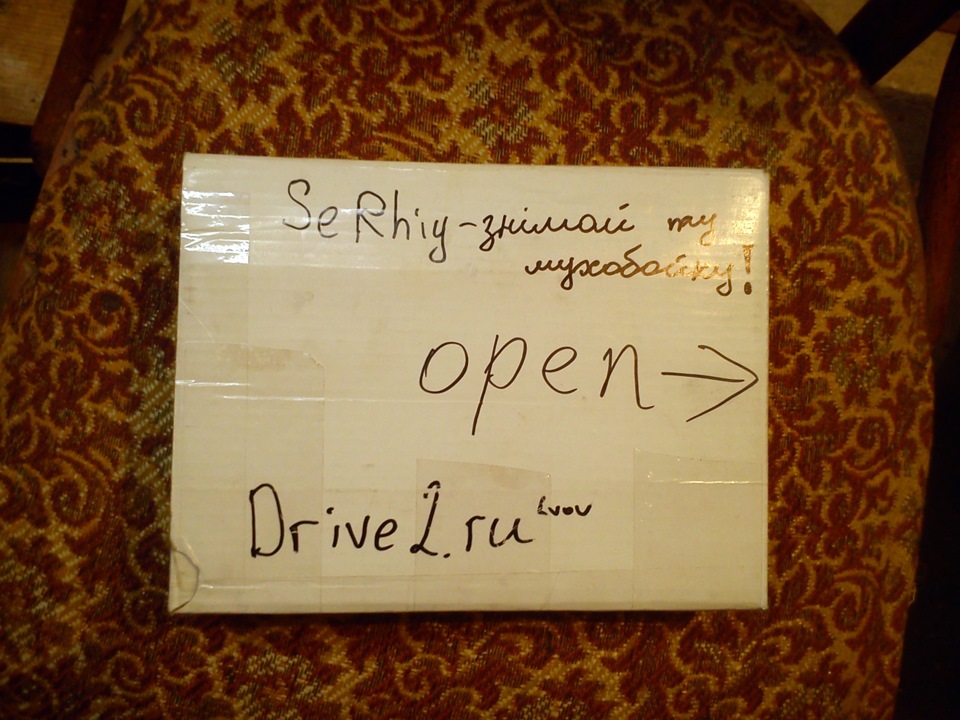 SeRhiy-знімай ту
мухобойку!
open →
Drive2.ru Lvov